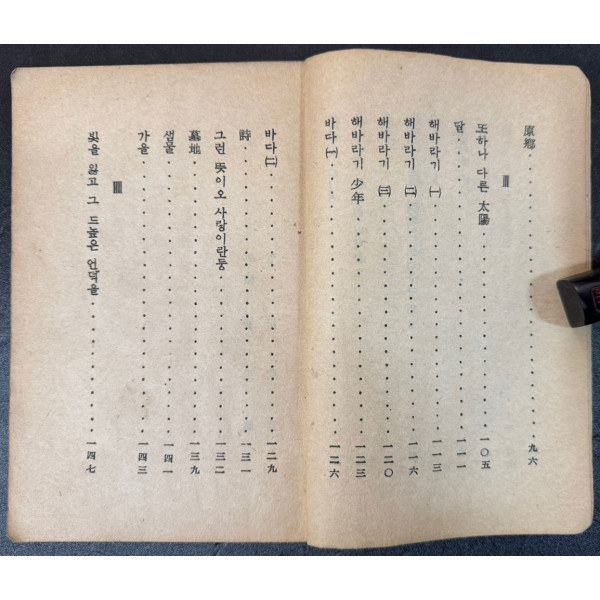 原鄕 · · · · · · · · · · · · · · 九六
Ⅲ
또하나 다른 太陽 · · · · · · · · · · 一〇五
달 · · · · · · · · · · · · · · 一一一
해바라기 ㈠ · · · · · · · · · · 一一三
해바라기 ㈡ · · · · · · · · · · 一一六
해바라기 ㈢ · · · · · · · · · · 一二〇
해바라기 少年 · · · · · · · · · · 一二三
바다㈠ · · · · · · · · · · · · 一二六
바다㈡ · · · · · · · · · · · · 一二九
詩 · · · · · · · · · · · · · · 一三一
그런 뜻이오 사랑이란둥 · · · · · · · · 一三二
墓地 · · · · · · · · · · · · · 一三九
샘물 · · · · · · · · · · · · · 一四一
가을 · · · · · · · · · · · · · 一四三
IIII
빛을 잃고 그 드높은 언덕을 · · · · · · · 一四七